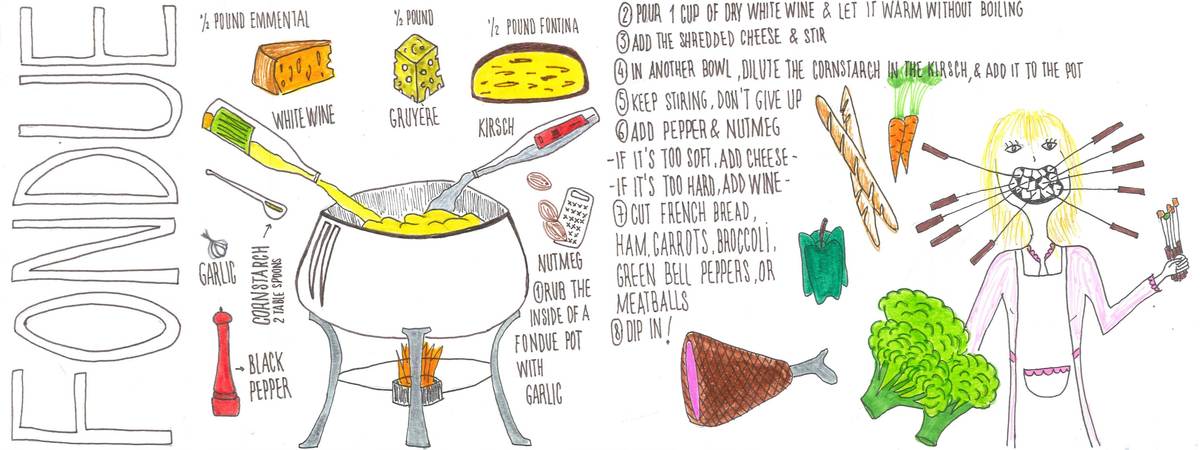 FONDUE
½ POUND EMMENTAL
½ POUND
GRUYÈRE
½ POUND FONTINA
WHITE WINE
KIRSCH
GARLIC
CORNSTARCH
2 TABLE SPOONS
BLACK
PEPPER
NUTMEG
① RUB THE
INSIDE OF A
FONDUE POT
WITH
GARLIC
② POUR 1 CUP OF DRY WHITE WINE & LET IT WARM WITHOUT BOILING
③ ADD THE SHREDDED CHEESE & STIR
④ IN ANOTHER BOWL, DILUTE THE CORNSTARCH IN THE KIRSCH, & ADD IT TO THE POT
⑤ KEEP STIRING, DON'T GIVE UP
⑥ ADD PEPPER & NUTMEG
-IF IT'S TOO SOFT, ADD CHEESE-
-IF IT'S TOO HARD, ADD WINE-
⑦ CUT FRENCH BREAD,
HAM, CARROTS, BROCCOLI,
GREEN BELL PEPPERS, OR
MEATBALLS
⑧ DIP IN!